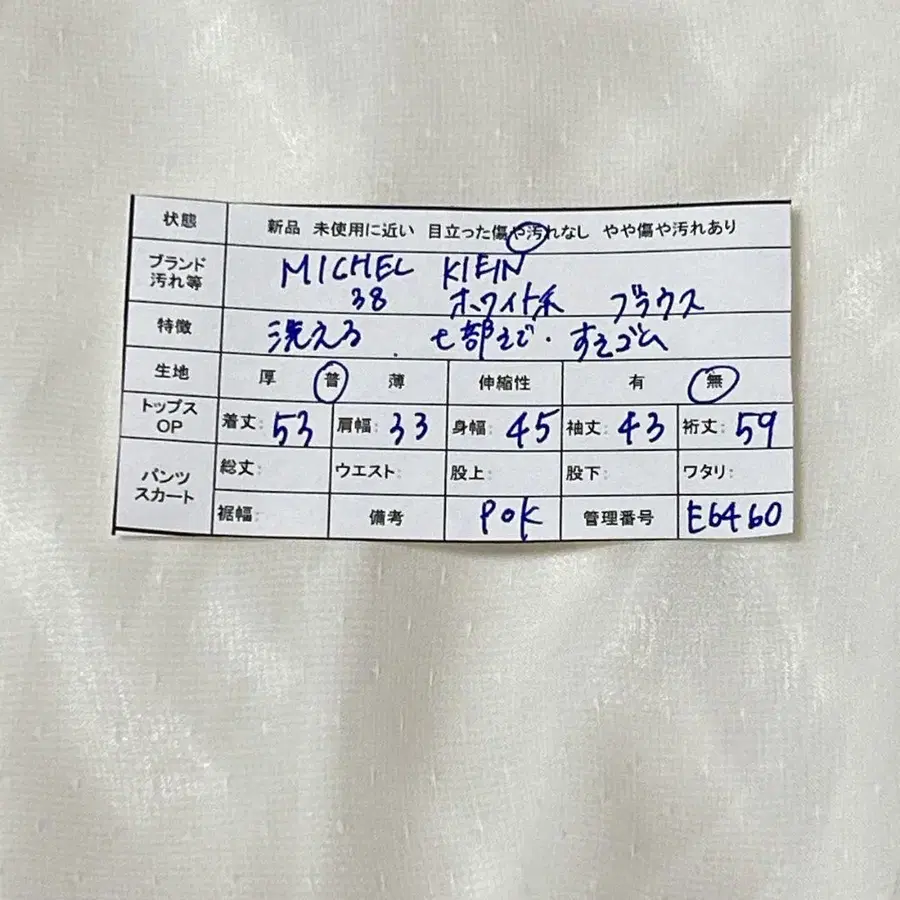 状態 新品 未使用に近い 目立った傷や汚れなし やや傷や汚れあり
ブランド MICHEL KLEIN
汚れ等 38 ホワイト系 ブラウス
特徴 洗える 七部そで・すそゴム
生地 厚 普 薄 伸縮性 有 無
トップス OP 着丈: 53 肩幅: 33 身幅: 45 袖丈: 43 裄丈: 59
パンツ スカート 総丈: ウエスト: 股上: 股下: ワタリ:
裾幅: 備考 POK 管理番号 E6460